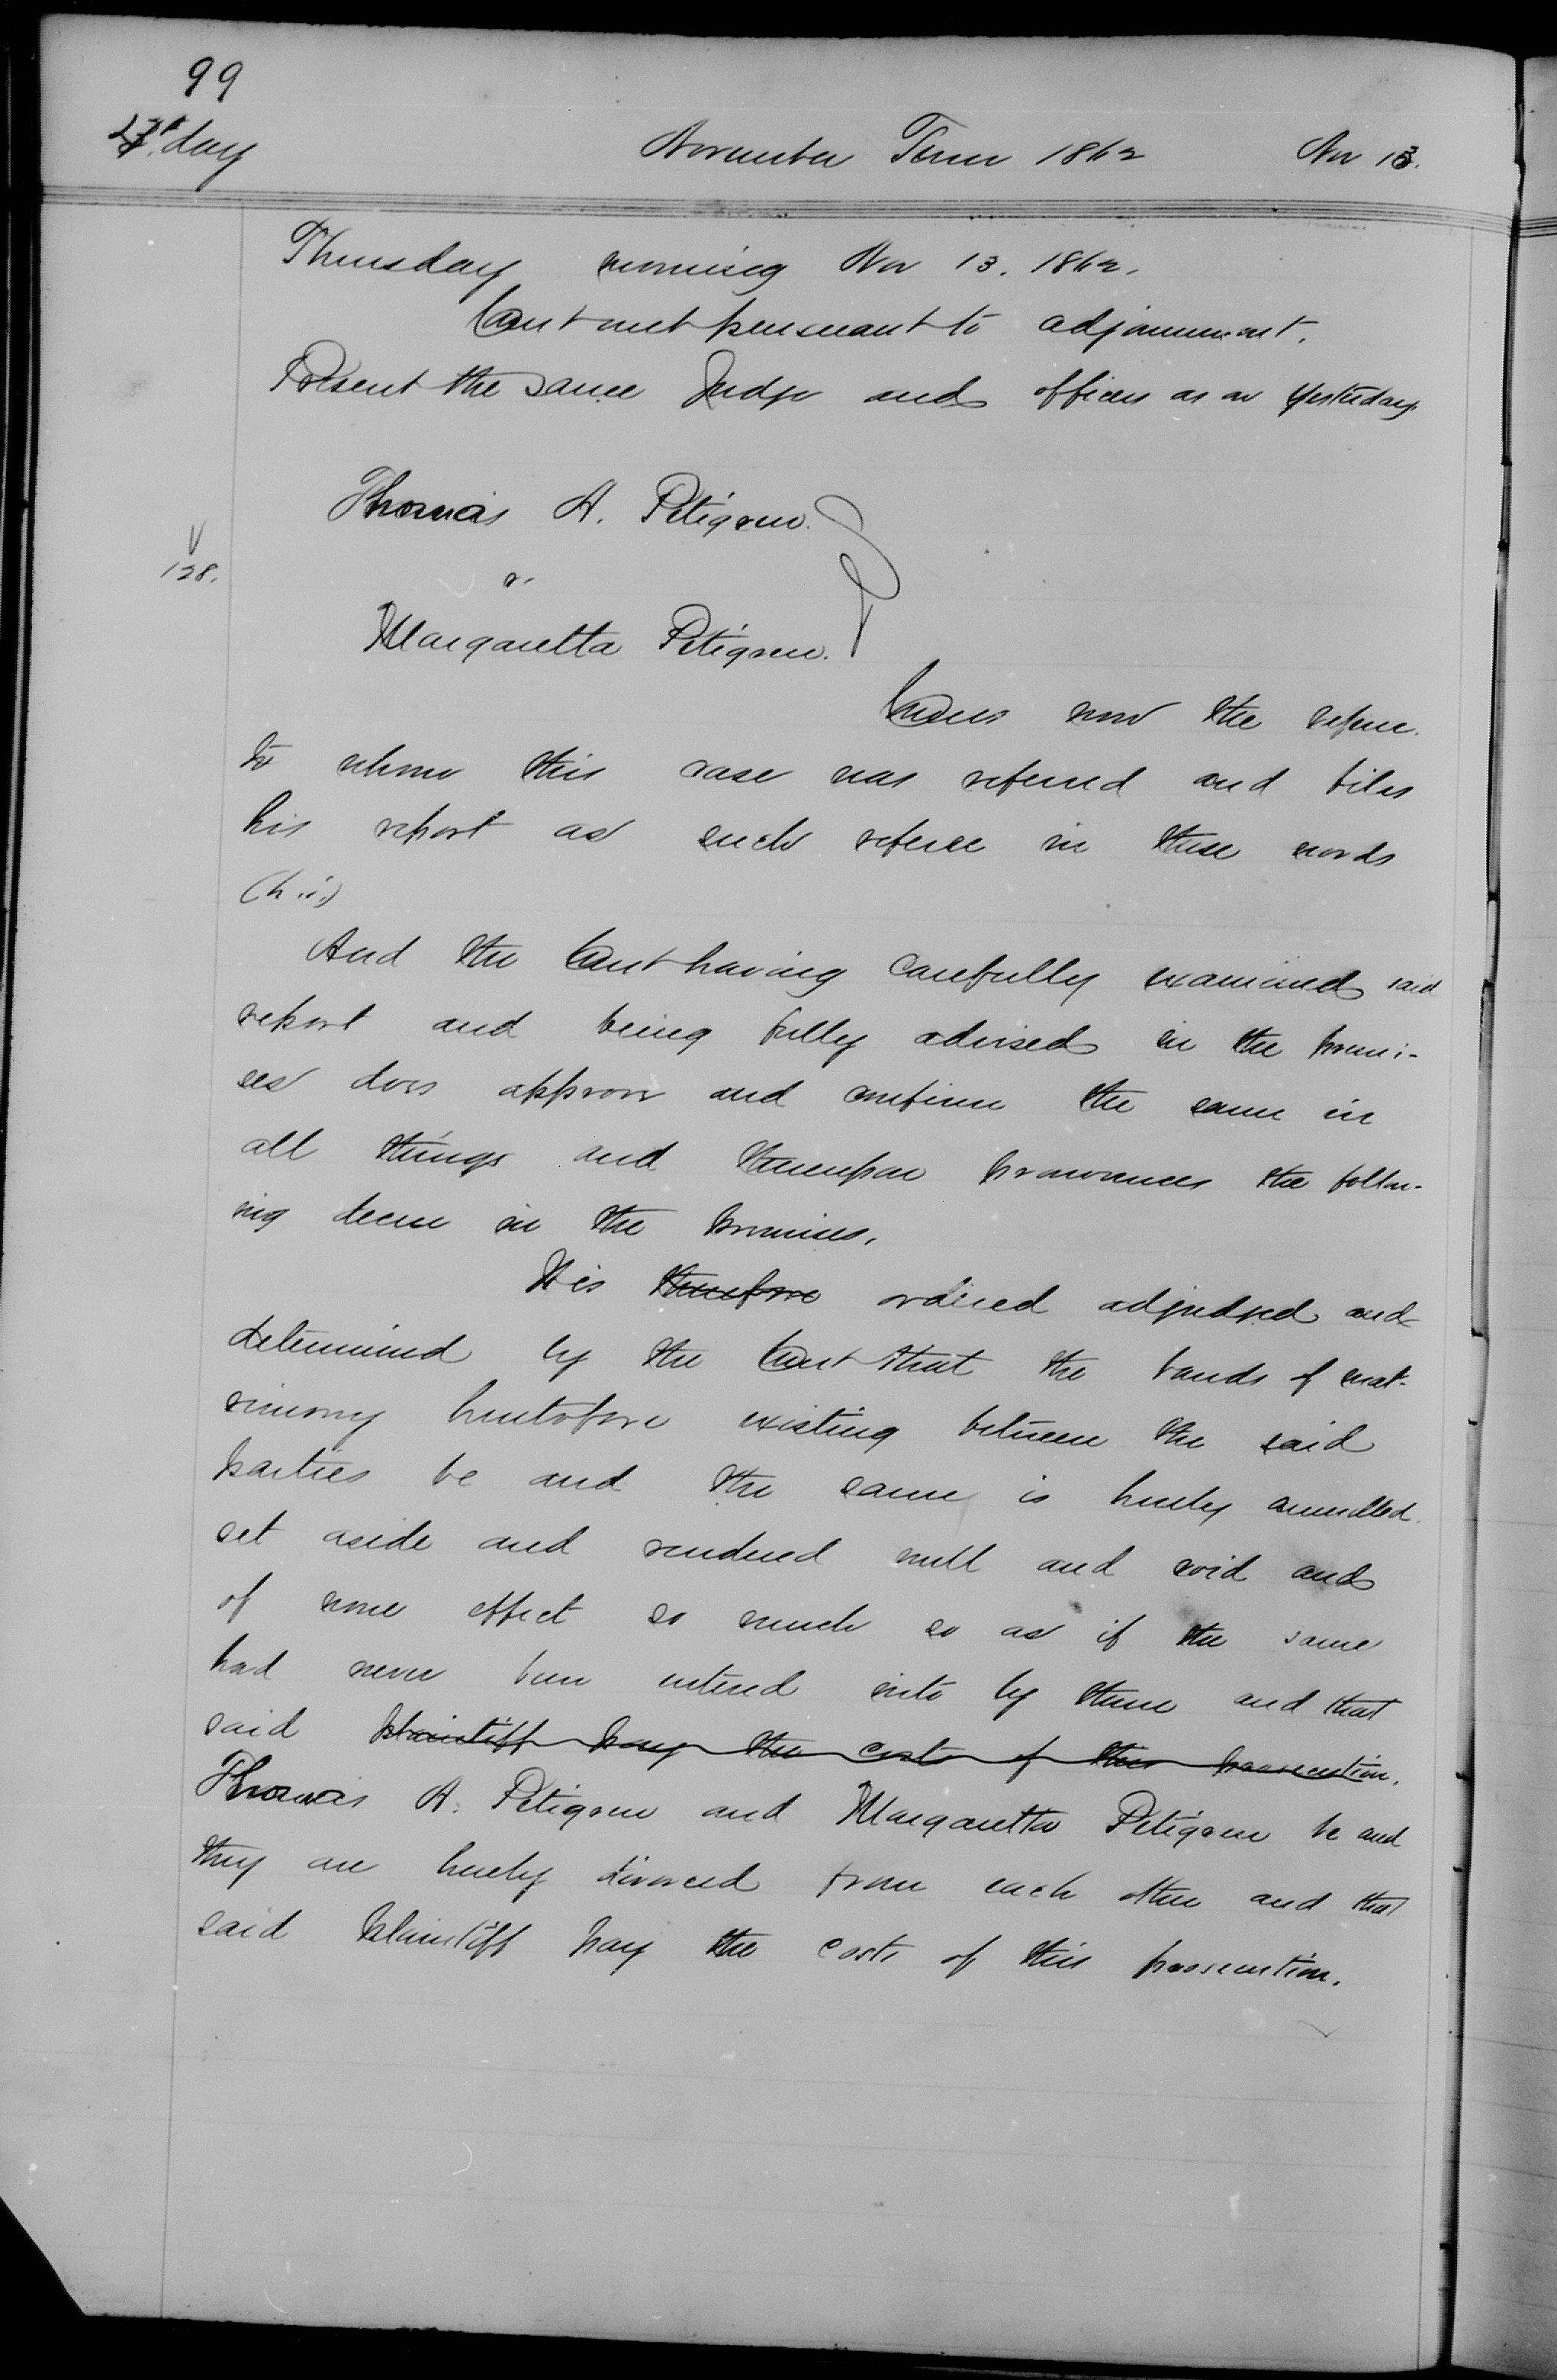 99
day
November Term 1862 Nov 13.
Thursday morning Nov 13. 1862.
Court met pursuant to adjournment.
Present the same Judge and officers as on yesterday.
Thomas A. Petigrew.
128.
v.
Margaretta Petigrew.
Comes now the referee.
to whom this case was referred and files
his report as such referee in these words
(h.i.)
And the Court having carefully examined said
report and being fully advised in the premi-
ses does approve and confirm the same in
all things and thereupon pronounces the follow-
ing decree in the premises.
It is therefore ordered adjudged and
determined by the Court that the bands of mat-
rimony heretofore existing between the said
parties be and the same is hereby annulled.
set aside and rendered null and void and
of none effect so much so as if the same
had never been entered into by them and that
said plaintiff pay the costs of this prosecution.
Thomas A. Petigrew and Margaretta Petigrew be and
they are hereby divorced from each other and that
said plaintiff pay the costs of this prosecution.